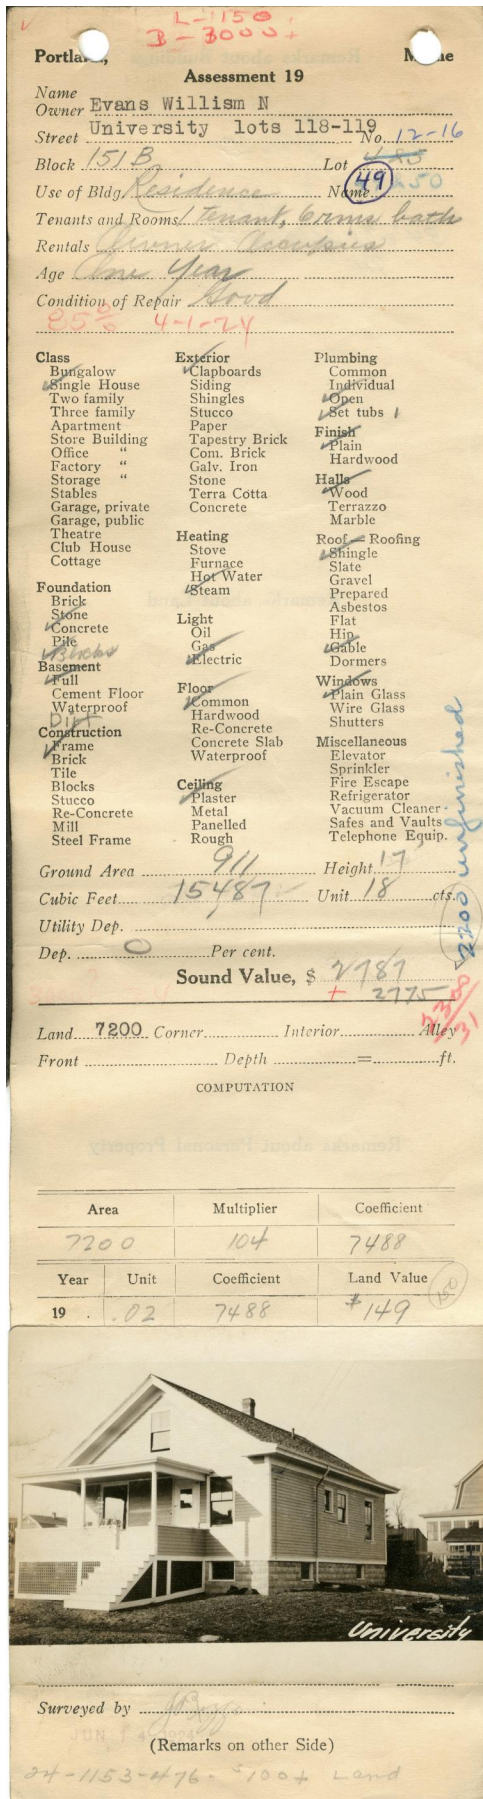 L-1150
B-3000+
Portland, Maine
Assessment 19
Name
Owner Evans Willism N
Street University lots 118-119 No. 12-16
Block 151B Lot
Use of Bldg. Residence Name 49 50
Tenants and Rooms 1 tenant, 6 rms bath
Rentals Owner Occupies
Age One Year
Condition of Repair Good
85% 4-1-24
Class
Bungalow
Single House
Two family
Three family
Apartment
Store Building
Office "
Factory "
Storage "
Stables
Garage, private
Garage, public
Theatre
Club House
Cottage
Foundation
Brick
Stone
Concrete
Pile
Blocks
Basement
Full
Cement Floor
Waterproof
Dirt
Construction
Frame
Brick
Tile
Blocks
Stucco
Re-Concrete
Mill
Steel Frame
Exterior
Clapboards
Siding
Shingles
Stucco
Paper
Tapestry Brick
Com. Brick
Galv. Iron
Stone
Terra Cotta
Concrete
Heating
Stove
Furnace
Hot Water
Steam
Light
Oil
Gas
Electric
Floor
Common
Hardwood
Re-Concrete
Concrete Slab
Waterproof
Ceiling
Plaster
Metal
Panelled
Rough
Plumbing
Common
Individual
Open
Set tubs 1
Finish
Plain
Hardwood
Halls
Wood
Terrazzo
Marble
Roof — Roofing
Shingle
Slate
Gravel
Prepared
Asbestos
Flat
Hip
Gable
Dormers
Windows
Plain Glass
Wire Glass
Shutters
Miscellaneous
Elevator
Sprinkler
Fire Escape
Refrigerator
Vacuum Cleaner
Safes and Vaults
Telephone Equip.
2200 unfinished
Ground Area 911 Height 17
Cubic Feet 15487 Unit 18 cts.
Utility Dep.
Dep. 0 Per cent.
Sound Value, $ 2787
+ 2775
2300/31
Land 7200 Corner Interior Alley
Front Depth = ft.
COMPUTATION
Area Multiplier Coefficient
7200 104 7488
Year Unit Coefficient Land Value
19 .02 7488 $149 150
University
Surveyed by
JUN 1 4 1924
(Remarks on other Side)
24-1153-476- $100+ Land